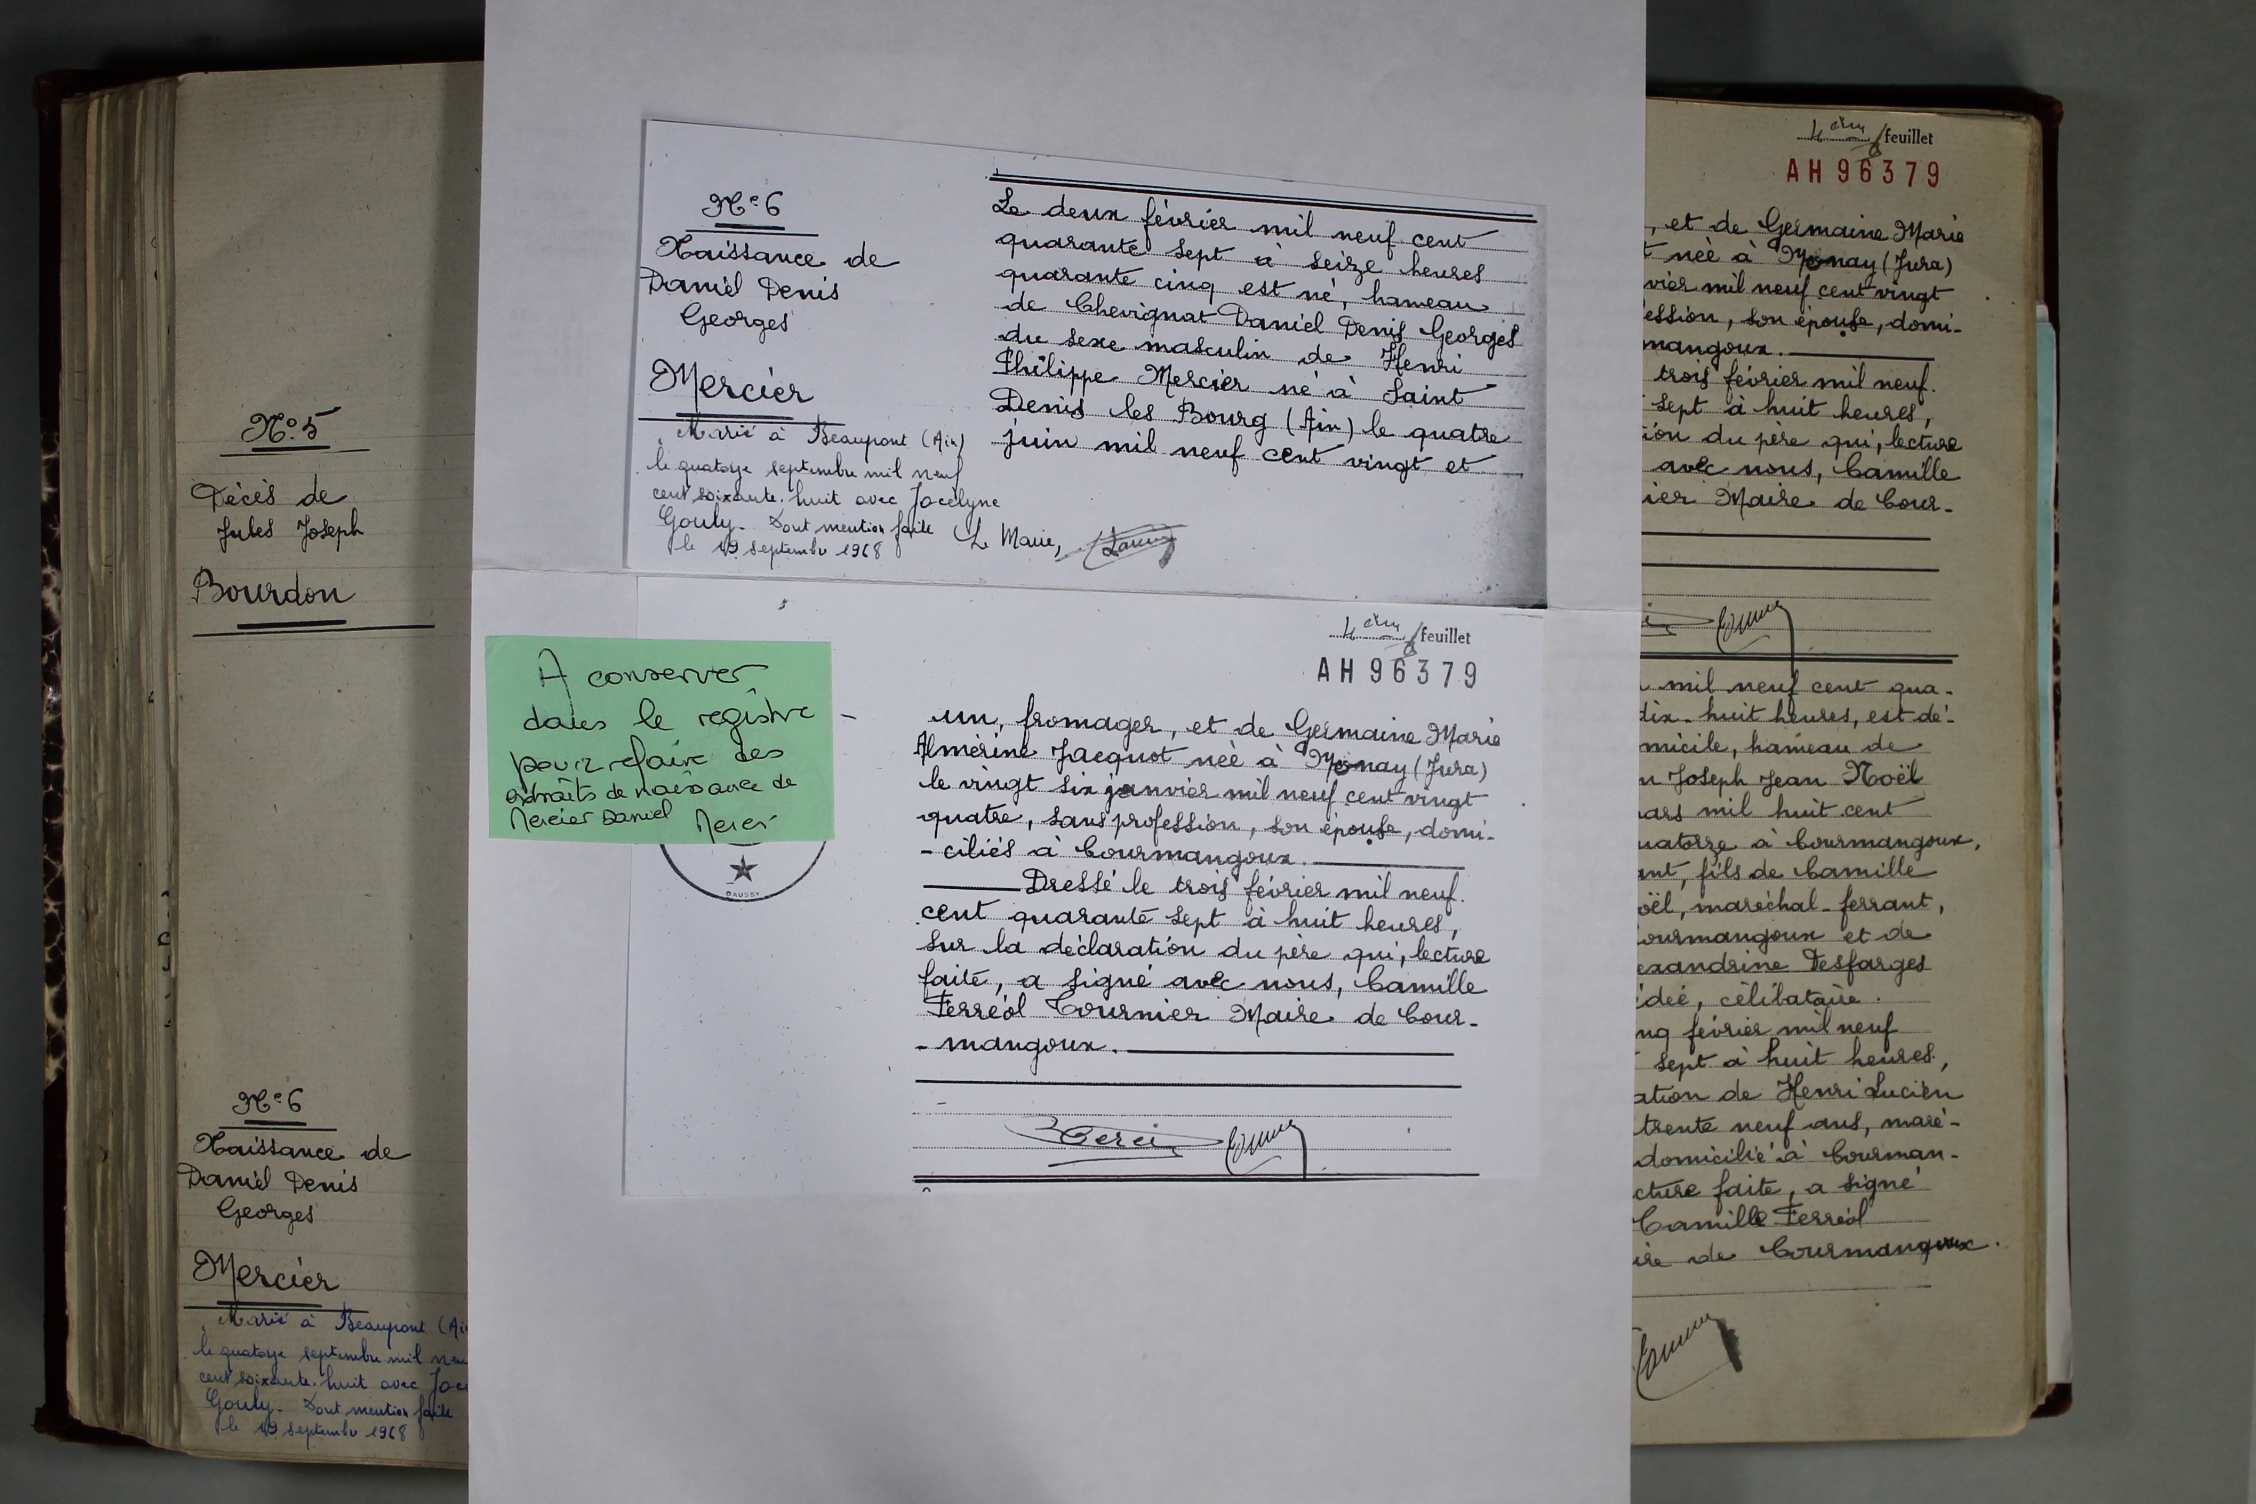 N° 5
Décès de
Jules Joseph
Bourdon
N° 6
Naissance de
Daniel Denis
Georges
Mercier
Marié à Beaupont (Ai
le quatorze septembre mil neu
cent soixante-huit avec Joce
Gouly. Dont mention faite
le 19 septembre 1968
N° 6
Naissance de
Daniel Denis
Georges
Mercier
Marié à Beaupont (Ain)
le quatorze septembre mil neuf
cent soixante-huit avec Jocelyne
Gouly. Dont mention faite
le 19 septembre 1968 Le Maire,
Le deux février mil neuf cent
quarante sept à seize heures
quarante cinq est né, hameau
de Chevignat Daniel Denis Georges
du sexe masculin de Henri
Philippe Mercier né à Saint
Denis les Bourg (Ain) le quatre
juin mil neuf cent vingt et
A conserver
dans le registre
pour refaire des
extraits de naissance de
Mercier Daniel Merci
4ème feuillet
AH96379
un, fromager, et de Germaine Marie
Almérine Jacquot née à Monay (Jura)
le vingt six janvier mil neuf cent vingt
quatre, sans profession, son épouse, domi-
-ciliés à Courmangoux.
Dressé le trois février mil neuf
cent quarante sept à huit heures,
sur la déclaration du père qui, lecture
faite, a signé avec nous, Camille
Ferréol Tournier Maire de Cour-
-mangoux.
4ème feuillet
AH96379
, et de Germaine Marie
t née à Monay (Jura)
vier mil neuf cent vingt
ession, son épouse, domi-
mangoux.
trois février mil neuf
sept à huit heures,
ion du père qui, lecture
avec nous, Camille
ier Maire de Cour-
mil neuf cent qua-
dix-huit heures, est dé-
micile, hameau de
n Joseph Jean Noël
ars mil huit cent
uatorze à Courmangoux,
ant, fils de Camille
oël, maréchal-ferrant,
ourmangoux et de
exandrine Desfarges
idée, célibataire.
nq février mil neuf
sept à huit heures,
ation de Henri Lucien
trente neuf ans, maré-
domicilié à Courman-
cture faite, a signé
Camille Ferréol
ire de Courmangoux.